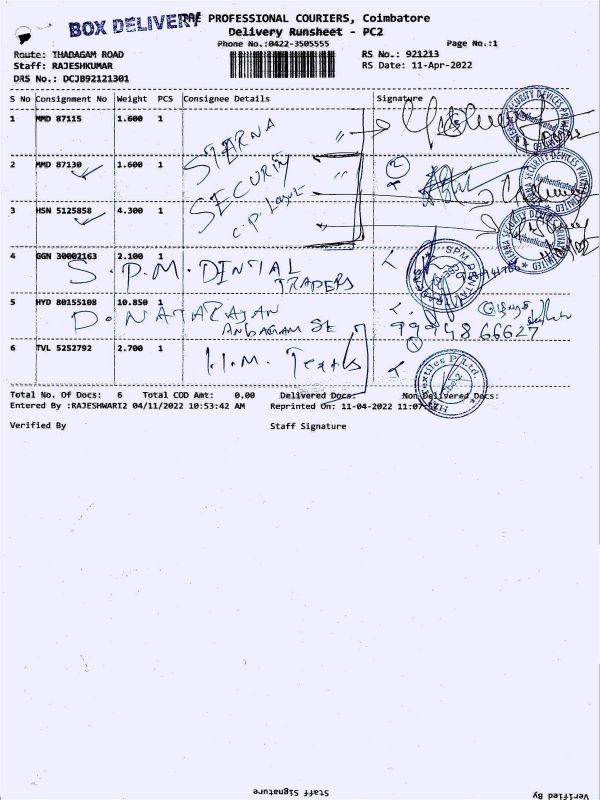 BOX DELIVERY
PROFESSIONAL COURIERS, Coimbatore
Delivery Runsheet - PC2
Phone No.:0422-3505555
Page No.:1
Route: THADAGAM ROAD
RS No.: 921213
Staff: RAJESHKUMAR
RS Date: 11-Apr-2022
DRS No.: DCJB92121301
S No Consignment No Weight PCS Consignee Details Signature
1 MMD 87115 1.600 1
STARNA
2 MMD 87130 1.600 1
SECURITY
3 HSN 5125858 4.300 1
C.P Layout
4 GGN 30002163 2.100 1
S.P.M. DINTIAL
TRADERS
5 HYD 80155108 10.850 1
D. NATARAJAN
9994866627
6 TVL 5252792 2.700 1
H.M. Texttls
Total No. Of Docs: 6 Total COD Amt: 0.00 Delivered Docs: Non Delivered Docs:
Entered By :RAJESHWARI2 04/11/2022 10:53:42 AM Reprinted On: 11-04-2022 11:07
Verified By Staff Signature
Staff Signature
Verified By